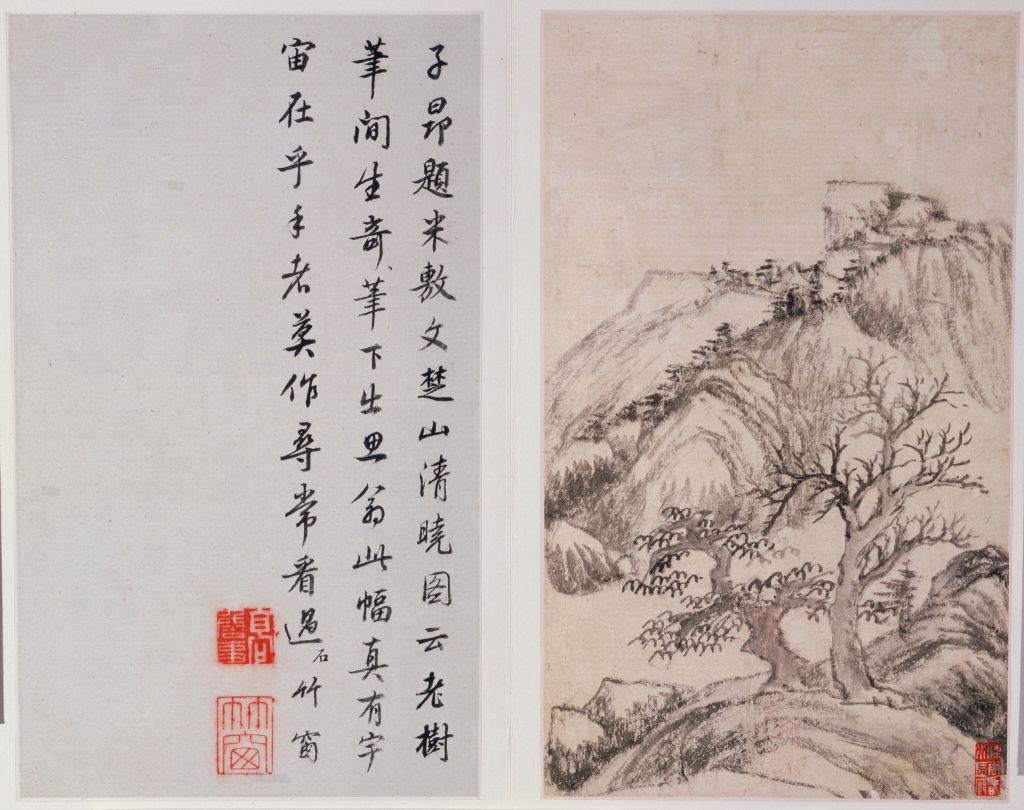 子昂題米敷文楚山清曉图云老樹
筆間生奇筆下出思翁此幅真有宇
宙在乎手者莫作尋常看過石竹窗
竹窗